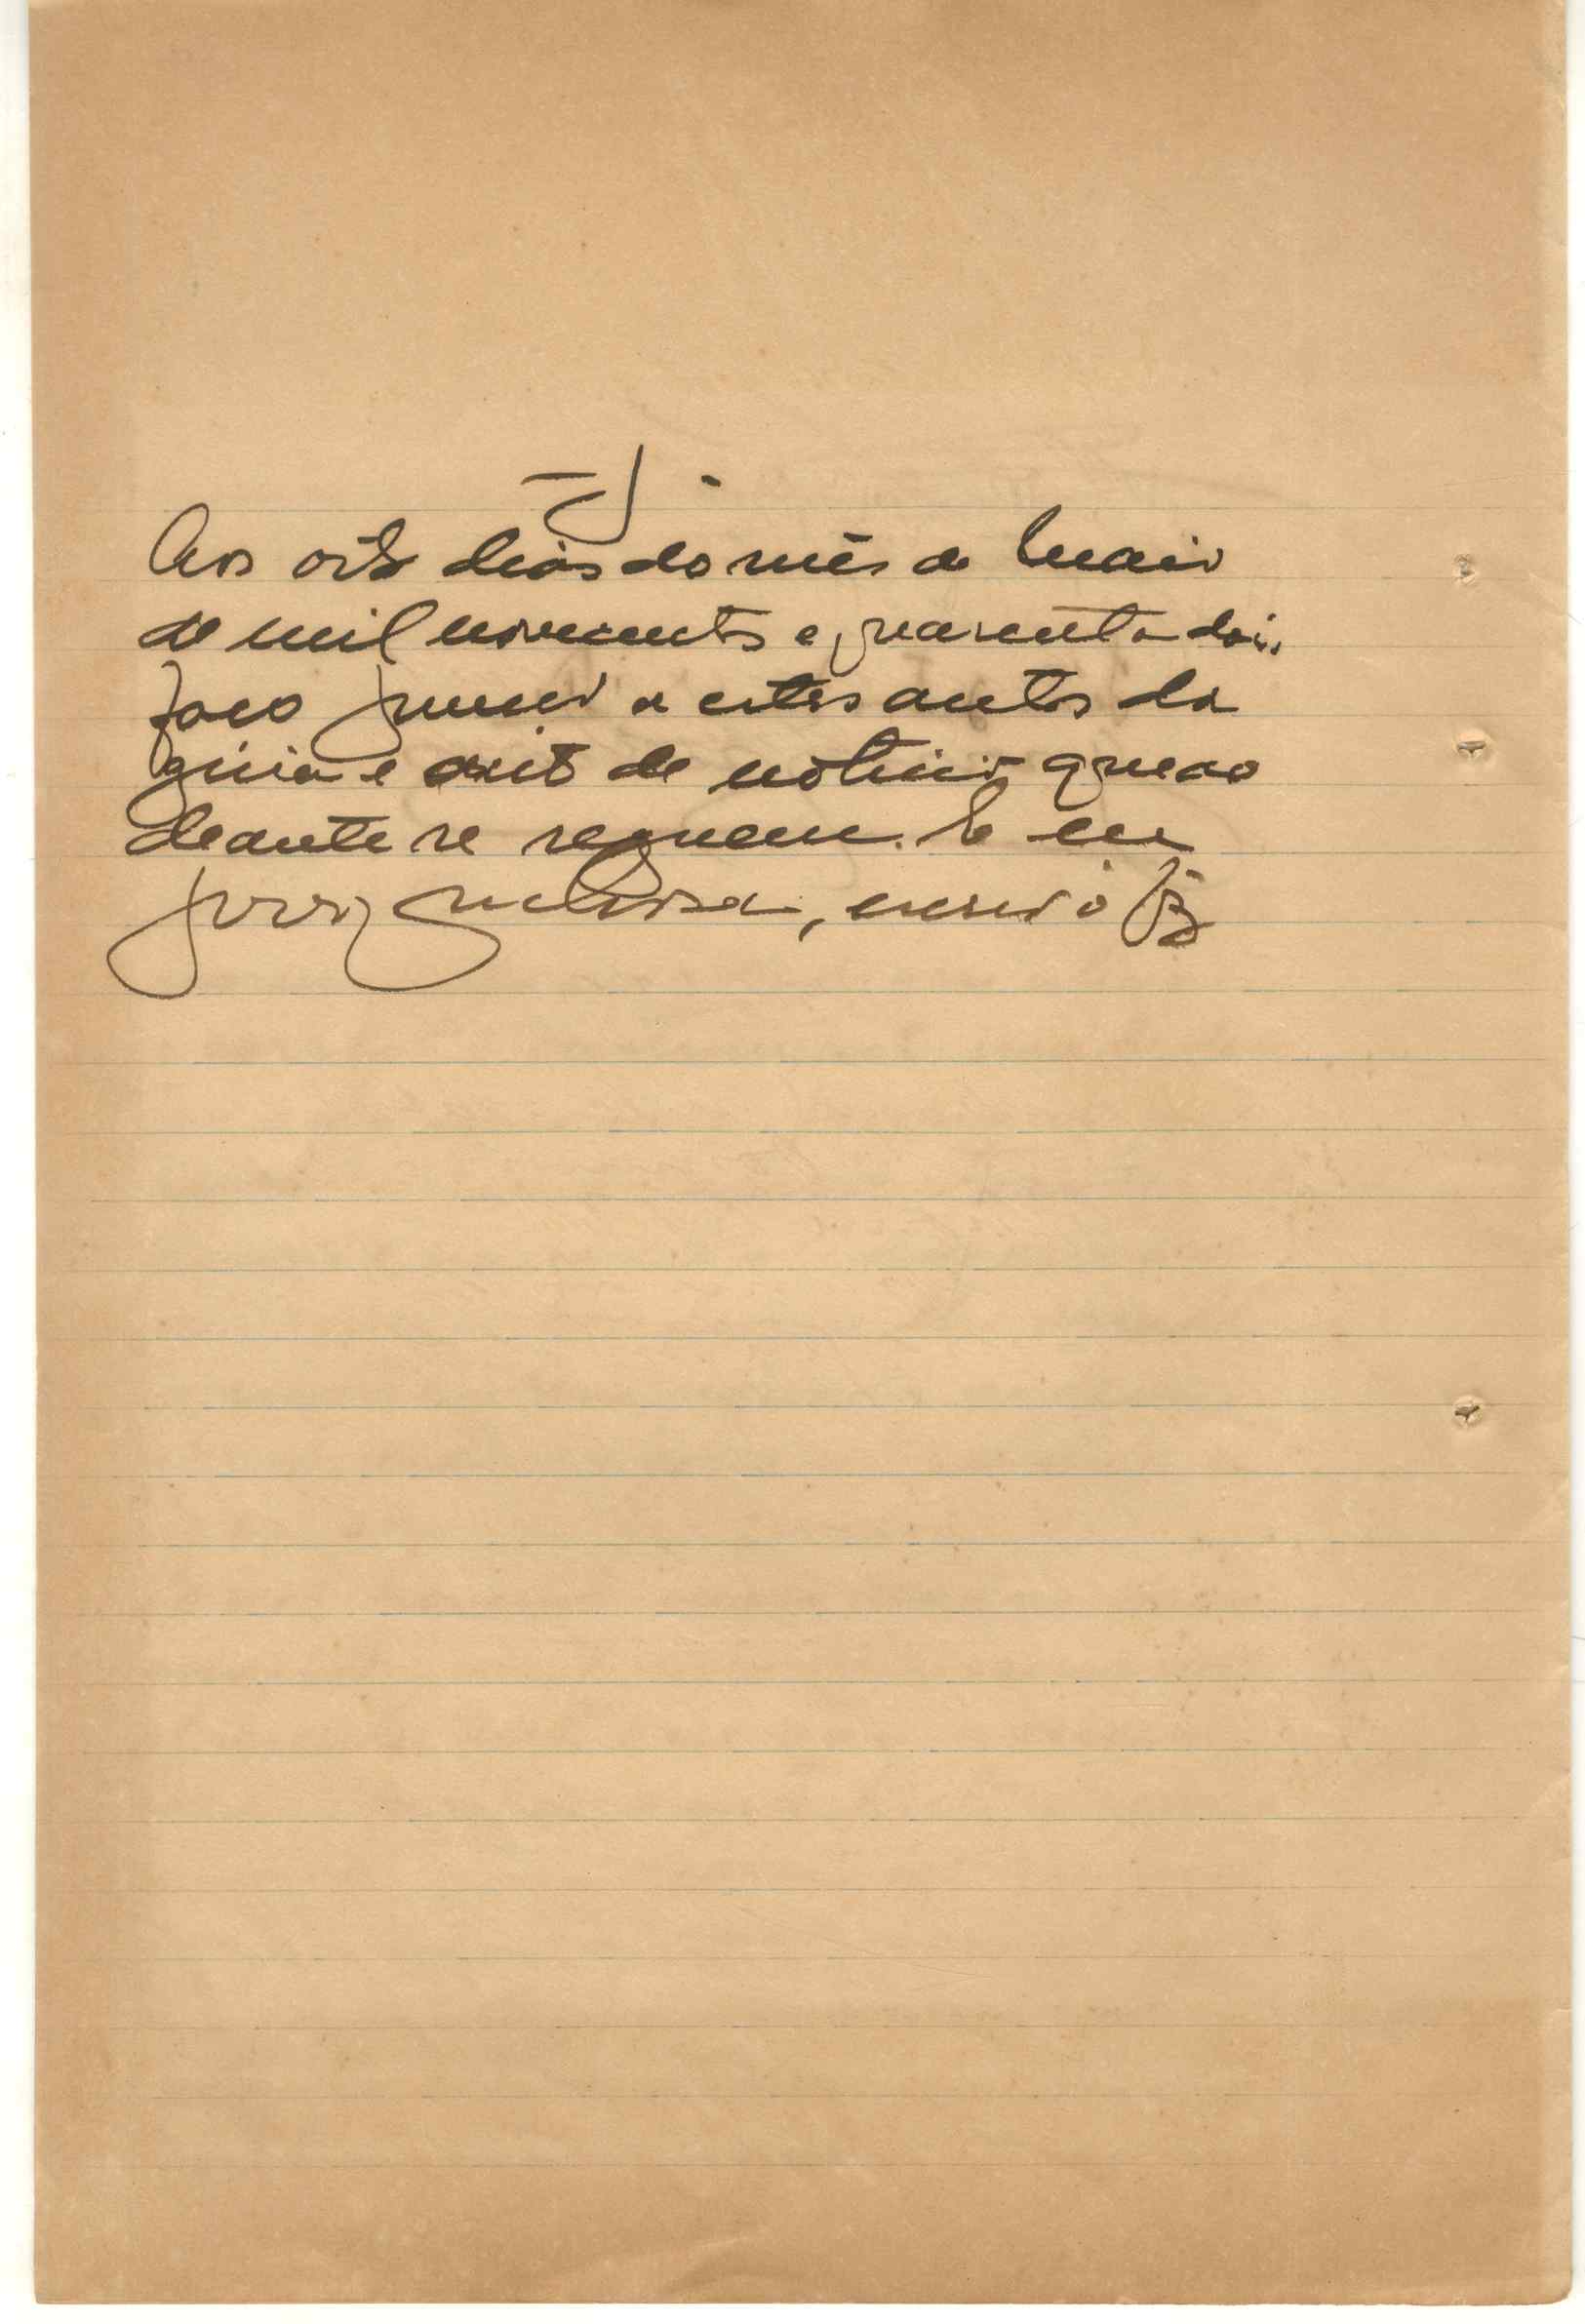 Aos oito dias do mês de Maio
de mil novecentos e quarenta dois
faço juntada a estes autos da
guia e de que ao
deante se seguem. E eu
escrivão